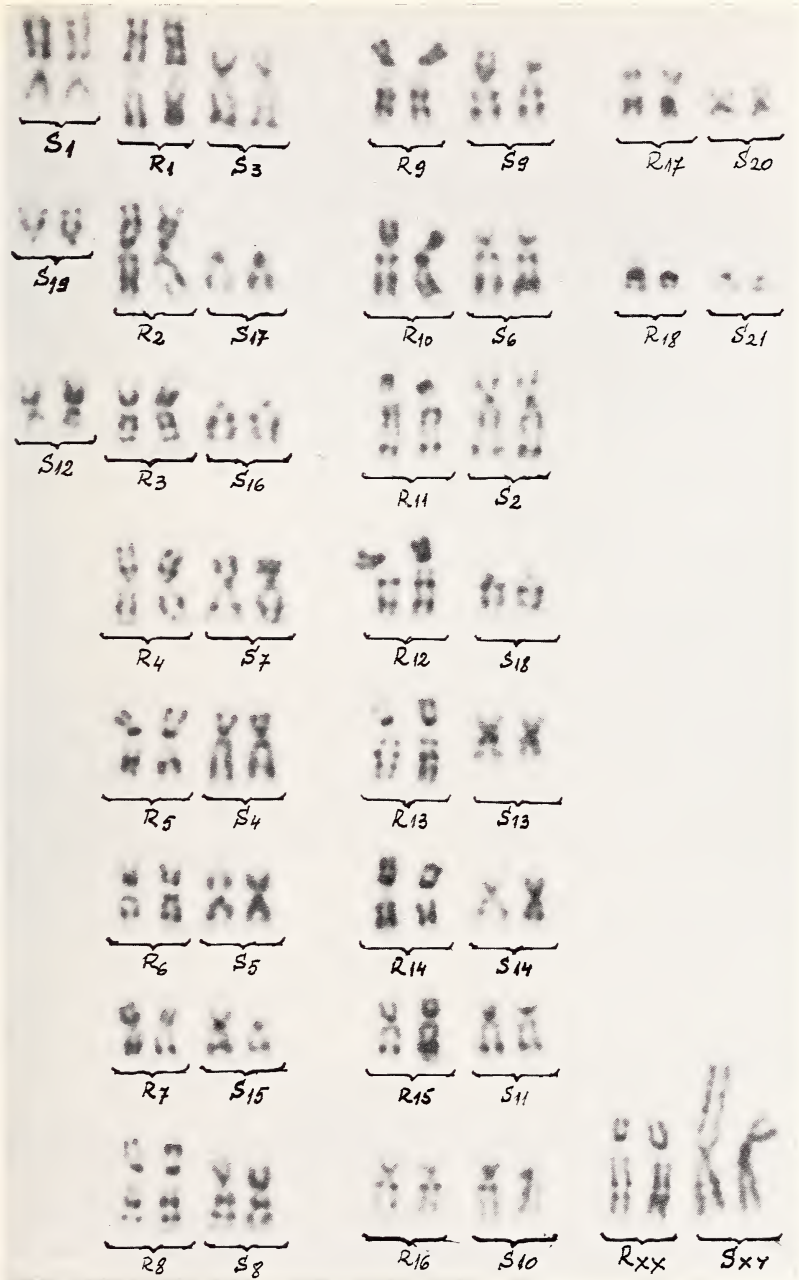 S1 R1 S3 R9 S9 R17 S20
S19 R2 S17 R10 S6 R18 S21
S12 R3 S16 R11 S2
R4 S7 R12 S18
R5 S4 R13 S13
R6 S5 R14 S14
R7 S15 R15 S11
R8 S8 R16 S10 RXX SXY